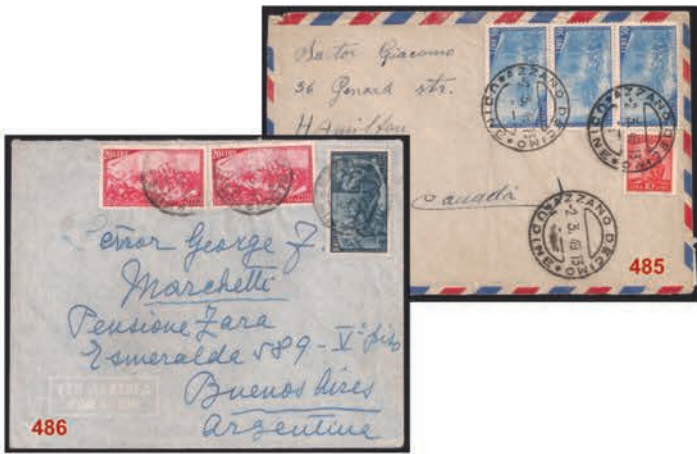 Sartor Giacomo
36 Genard str.
Hamilton
Canadà
AZZANO DECIMO
UDINE
2.3.49.13
AZZANO DECIMO
UDINE
AZZANO DECIMO
UDINE
2.3.49.13
485
20 LIRE
20 LIRE
Señor George J.
Marchetti
Pensione Zara
Esmeralda 589 - V° piso
Buenos Aires
Argentina
486